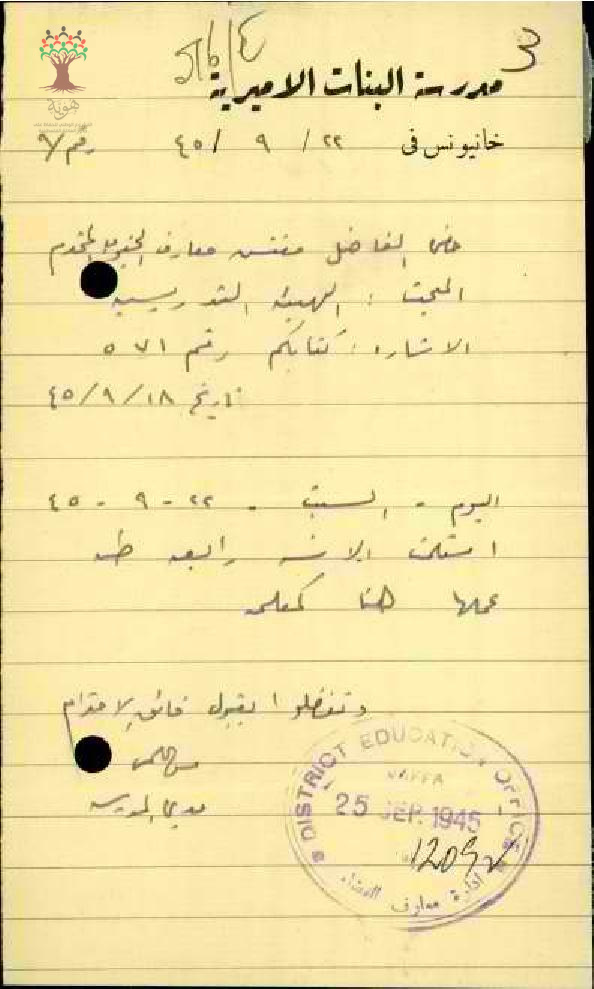 هوية
3
5/6/4
مدرسة البنات الاميرية
خانيونس في ٢٢ / ٩ / ٤٥ رقم ٩/
الفاضل مفتش معارف المحترم
المبحث : الهيئة التدريسية
الاشارة : كتابكم رقم ٥٧١
تاريخ ١٨/٩/٤٥
اليوم - السبت - ٢٢ - ٩ - ٤٥
استلمت الانسة رابعة
عملها هنا كمعلمة
وتفضلوا بقبول فائق الاحترام
مديرة المدرسة
DISTRICT EDUCATION OFFICE
JAFFA
25 SEP. 1945
1209
ادارة معارف اللواء